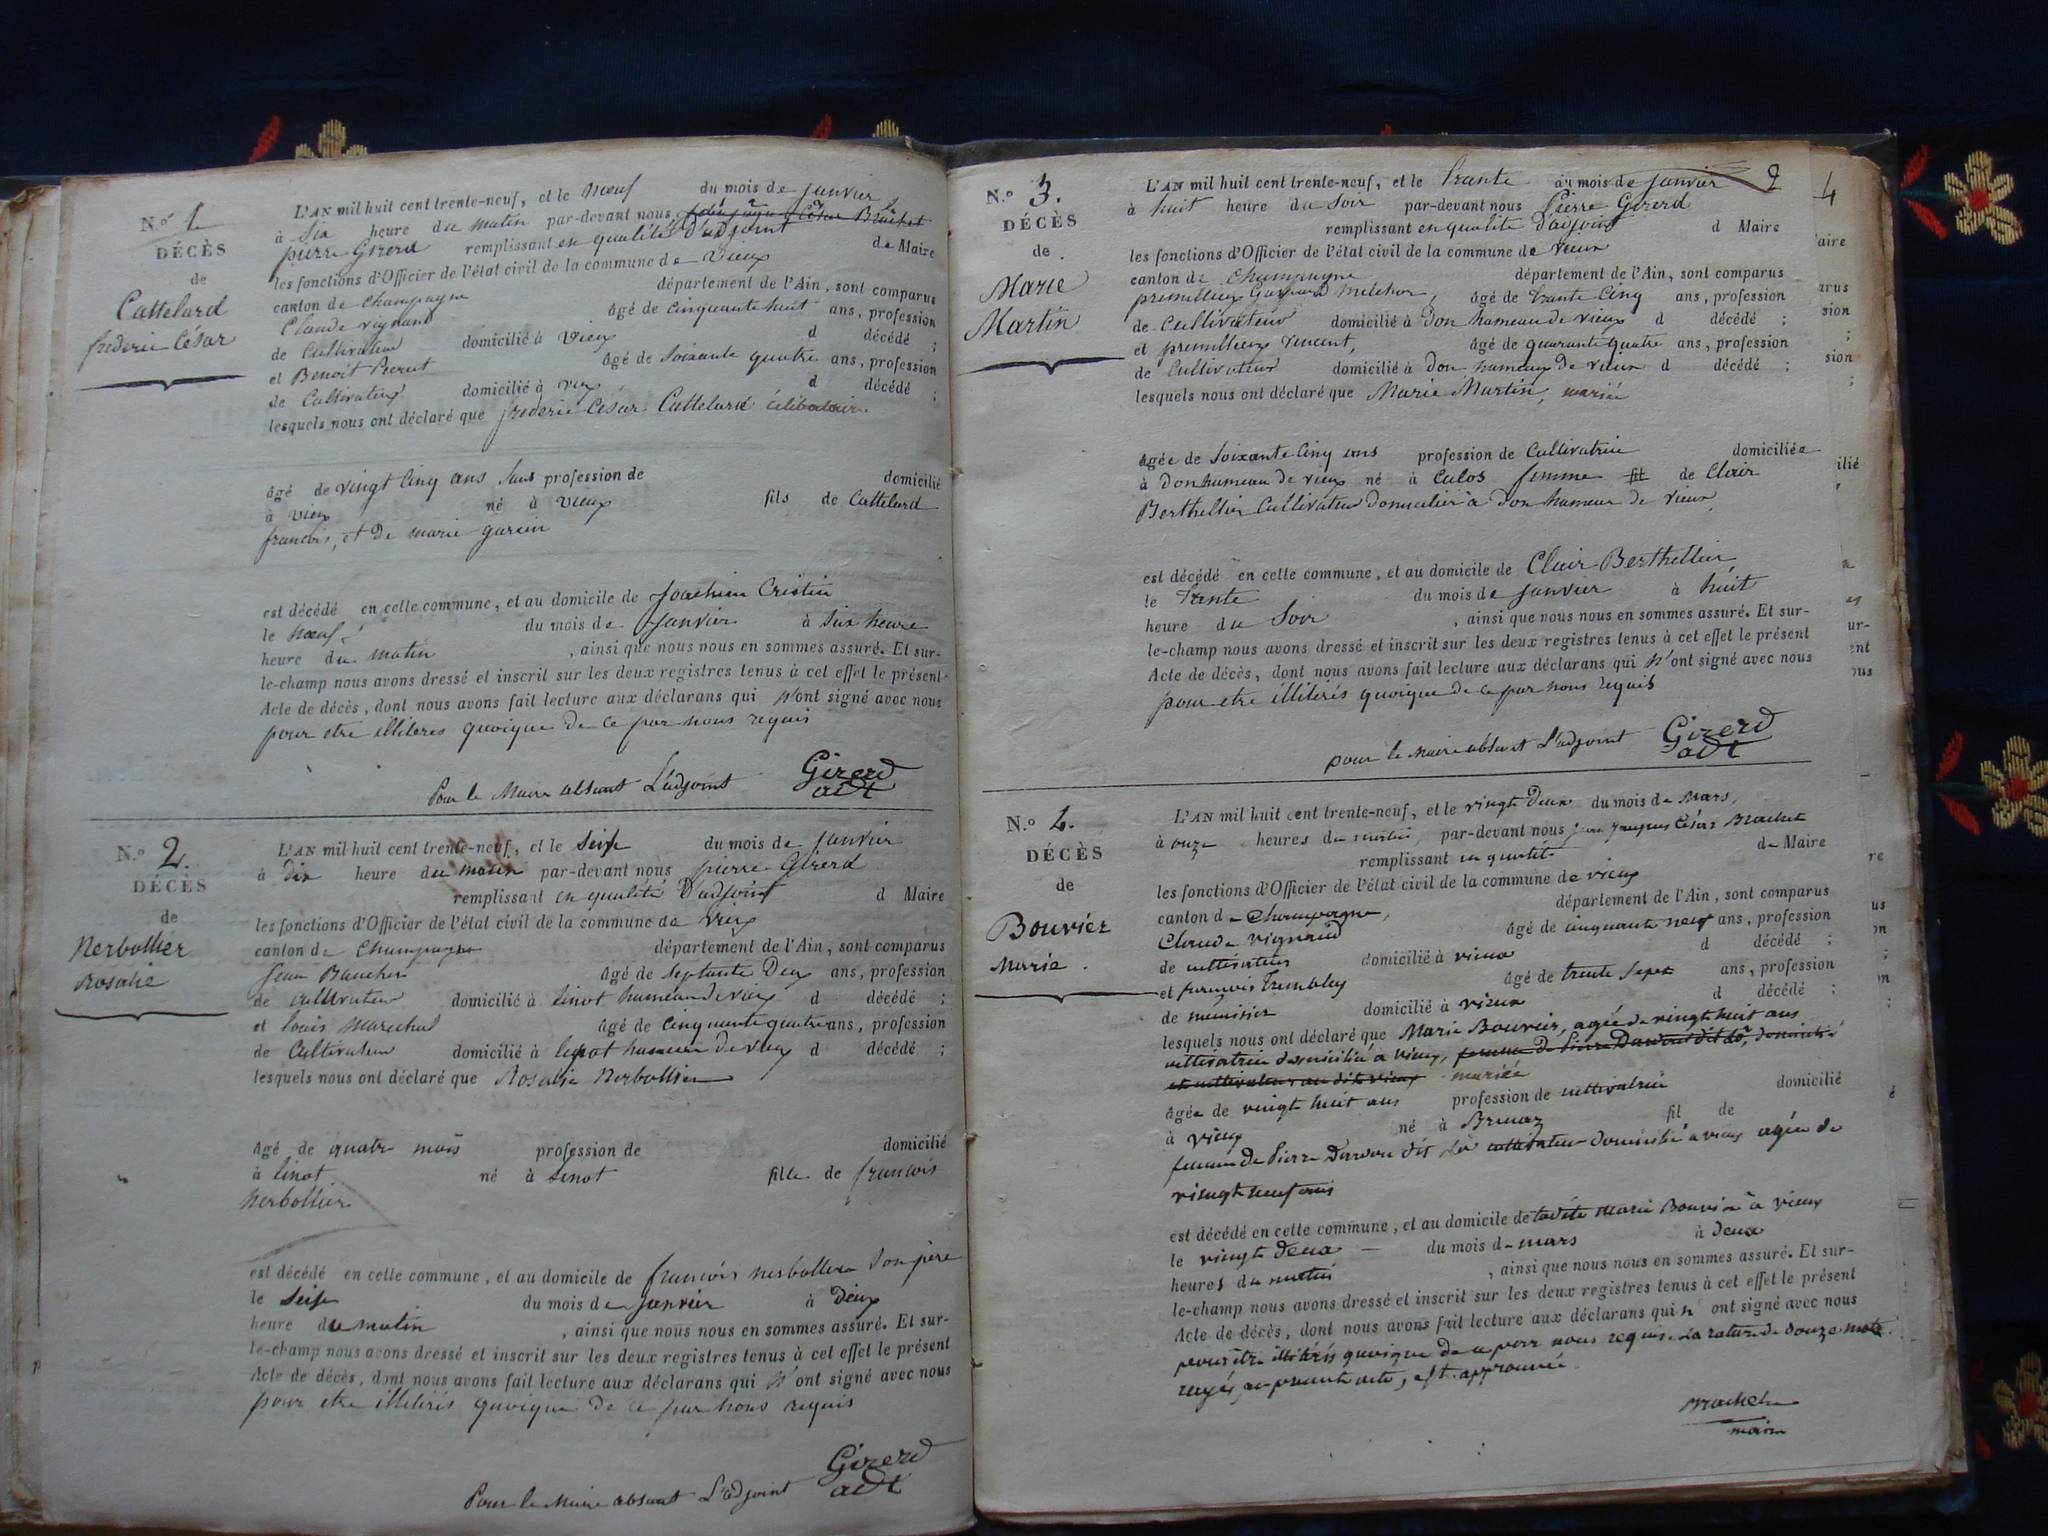 N.º 1.
DÉCÈS
de
Cattelard
frederic César
L'AN mil huit cent trente-neuf, et le Nœuf du mois de janvier
à Six heure du matin par-devant nous,
pierre Girerd remplissant en qualité D'adjoint de Maire
les fonctions d'Officier de l'état civil de la commune de Vieux
canton de Champagne département de l'Ain, sont comparus
Claude vignand âgé de cinquante huit ans, profession
de Cultivateur domicilié à Vieux d décédé ;
et Benoit âgé de Soixante quatre ans, profession
de Cultivateur domicilié à vieux d décédé ;
lesquels nous ont déclaré que frederic César Cattelard célibataire
âgé de vingt Cinq ans Sans profession de domicilié
à vieux né à vieux fils de Cattelard
francois, et de marie garin
est décédé en cette commune, et au domicile de Joachim Cristin
le Nœuf du mois de Janvier à Six heure
heure du matin , ainsi que nous nous en sommes assuré. Et sur-
le-champ nous avons dressé et inscrit sur les deux registres tenus à cet effet le présent
Acte de décès, dont nous avons fait lecture aux déclarans qui N'ont signé avec nous
pour etre illiteres quoique de ce par nous requis
Pour le Maire absent L'adjoint Girerd
adt
N.º 2.
DÉCÈS
de
Nerbollier
Rosalie
L'AN mil huit cent trente-neuf, et le Seise du mois de janvier
à dix heure du matin par-devant nous pierre Girerd
remplissant en qualité D'adjoint d Maire
les fonctions d'Officier de l'état civil de la commune de Vieux
canton de Champagne département de l'Ain, sont comparus
Jean âgé de Septante Deux ans, profession
de cultivateur domicilié à linot hameau de vieux d décédé ;
et louis Marechal âgé de Cinquante quatre ans, profession
de Cultivateur domicilié à hameau de vieux d décédé ;
lesquels nous ont déclaré que Rosalie Nerbollier
âgé de quatre mois profession de domicilié
à linot né à Linot fille de francois
Nerbollier
est décédé en cette commune, et au domicile de francois nerbollier Son père
le Seise du mois de janvier à Deux
heure du matin , ainsi que nous nous en sommes assuré. Et sur-
le-champ nous avons dressé et inscrit sur les deux registres tenus à cet effet le présent
Acte de décès, dont nous avons fait lecture aux déclarans qui N'ont signé avec nous
pour etre illiterés quoique de ce par nous requis
Pour le Maire absent L'adjoint Girerd
adt
2
N.º 3.
DÉCÈS
de
Marie
Martin
L'AN mil huit cent trente-neuf, et le trante du mois de janvier
à huit heure du Soir par-devant nous Pierre Girerd
remplissant en qualité D'adjoint d Maire
les fonctions d'Officier de l'état civil de la commune de vieux
canton de Champagne département de l'Ain, sont comparus
premillieux Gaspard Melchor, âgé de trante Cinq ans, profession
de Cultivateur domicilié à Don hameau de vieux d décédé ;
et premillieux vincent, âgé de quarante quatre ans, profession
de Cultivateur domicilié à Don hameau de vieux d décédé ;
lesquels nous ont déclaré que Marie Martin, mariée
âgée de Soixante Cinq ans profession de Cultivatrice domiciliée
à Don hameau de vieux né à Culos femme fil de Clair
Berthellier Cultivateur Domicilier à Don hameau de vieux
est décédé en cette commune, et au domicile de Clair Berthellier
le trante du mois de janvier à huit
heure du Soir , ainsi que nous nous en sommes assuré. Et sur-
le-champ nous avons dressé et inscrit sur les deux registres tenus à cet effet le présent
Acte de décès, dont nous avons fait lecture aux déclarans qui N'ont signé avec nous
pour etre illiterés quoique de ce par nous requis
pour le Maire absent L'adjoint Girerd
adt
N.º 4.
DÉCÈS
de
Bouvier
Marie.
L'AN mil huit cent trente-neuf, et le vingt Deux du mois de Mars,
à onze heures du matin, par-devant nous jean jacques César Brachet
remplissant en qualité de Maire
les fonctions d'Officier de l'état civil de la commune de vieux
canton de Champagne, département de l'Ain, sont comparus
Claude vignand âgé de cinquante neuf ans, profession
de cultivateur domicilié à vieux d décédé ;
et francois Trembley âgé de trente Sept ans, profession
de meunier domicilié à vieux d décédé ;
lesquels nous ont déclaré que Marie Bouvier, agée de vingt huit ans
cultivatrice domiciliée à vieux, femme de Pierre
mariée
âgée de vingt huit ans profession de cultivatrice domicilié
à vieux né à Brenaz fil de
femme de Pierre dit cultivateur domicilié à vieux agée de
vingt neuf ans
est décédé en cette commune, et au domicile de ladite Marie Bouvier à vieux
le vingt deux du mois de mars à deux
heures du matin , ainsi que nous nous en sommes assuré. Et sur-
le-champ nous avons dressé et inscrit sur les deux registres tenus à cet effet le présent
Acte de décès, dont nous avons fait lecture aux déclarans qui n'ont signé avec nous
pour être illiterés quoique de ce par nous requis. La rature de douze mots
rayés au présent acte, est approuvée.
Brachet
maire
4